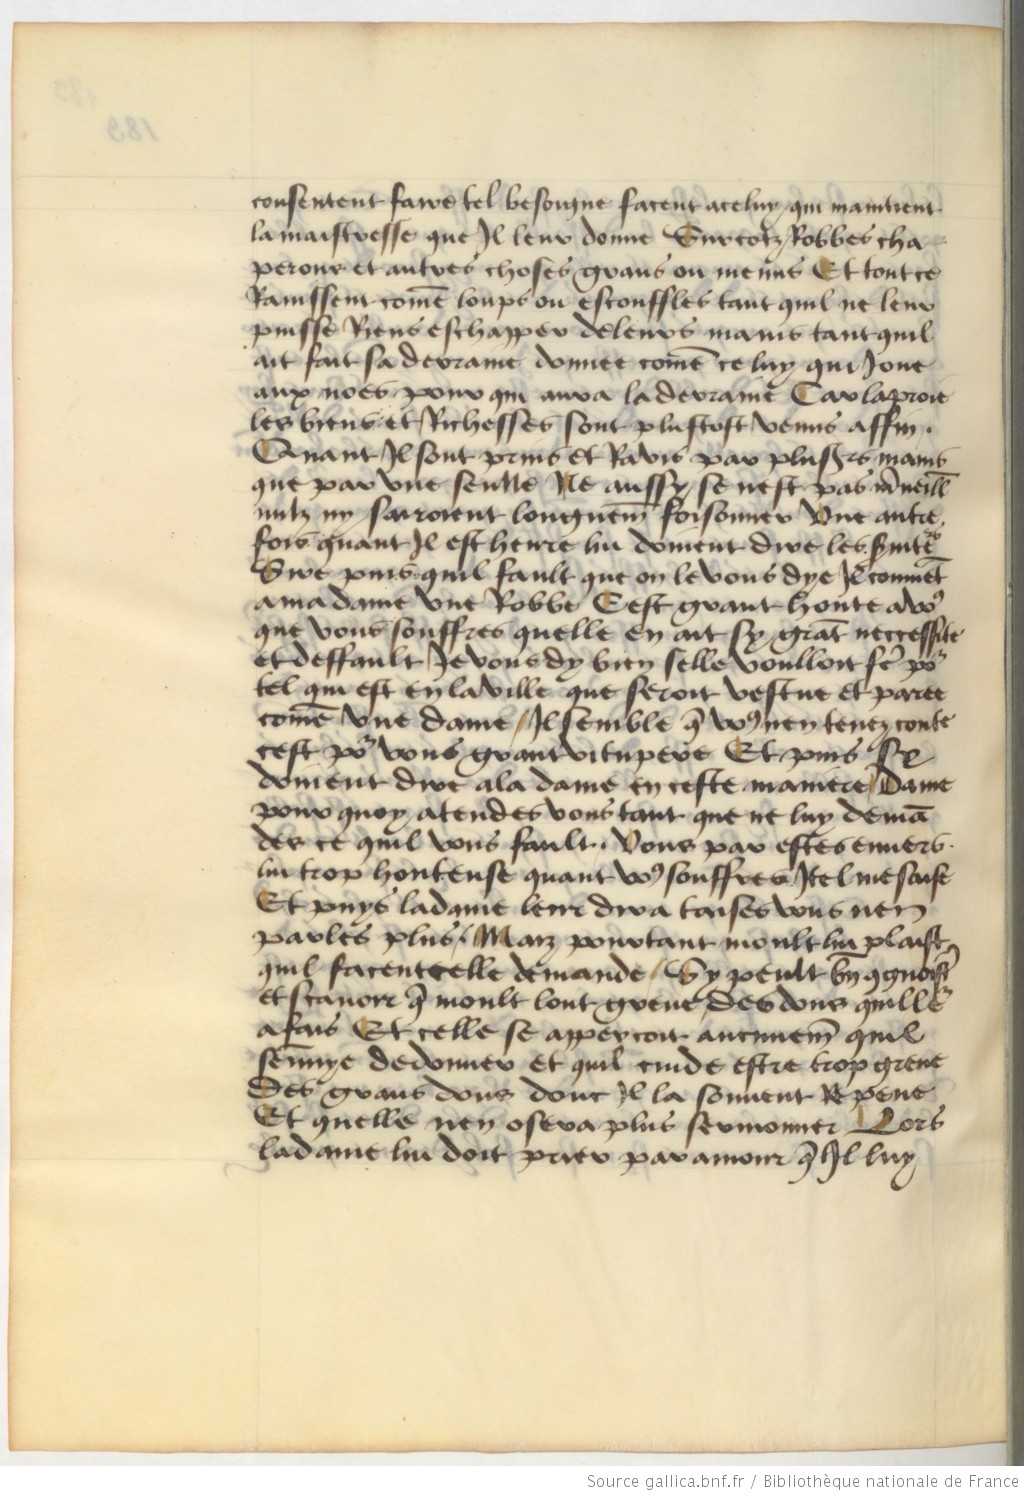 consentent faire tel besoigne facent a celuy qui maintient
la maistresse que Il leur donne Surcotz Robbes cha
perons et autres choses grans ou menus Et tout ce
Ravissent com̄e loups ou escouffles tant quil ne leur
puisse Riens eschapper de leurs mains tant quil
ait fait sa derraine donnee com̄e celuy qui Joue
aux noes pour qui aura la derraine Car la proie
les biens et Richesses sont plustost venus affin .
Quant Il sont prins et Ravis par plus̄rs mains
que par vne seulle Ne aussy se nest pas m̄veill
nulz ny sairoient longuem̄ foisonner Vne autre
fois quant Il est heure lui doivent dire les
Sire puis quil fault que on le vous dye Il conviēt
a ma dame vne Robbe Cest grant honte a voꝰ
que vous souffres quelle en ait sy grāt neccessite
et deffault Je vous dy bien selle voulloit fē pō
tel qui est en la ville que seroit vestue et paree
com̄e vne dame / Il semble q̄ voꝰ nen tenez conte
cest pō vous grant vitupere Et puis se
doivent dire a la dame en ceste maniere Dame
pour quoy atendes vous tant que ne luy demā
des ce quil vous fault . Vous par estes envers
lui trop honteuse quant voꝰ souffres Itel mesaise
Et puys la dame leur dira taises vous nen
parles plus / Maiz pourtant moult lui plaist
quil facent celle demande / Sy peult bn̄
et scavoir q̄ moult lont greve des dons quil lē
a fais Et celle se apperçoit aucunem̄ quil
sen̄uye de donner et quil cuide estre trop greve
Des grans dons donc Il la souvent Repeue
Et quelle nen osera plus sermonner Lors
la dame lui doit prier par amour q̄ Il luy
Source gallica.bnf.fr / Bibliothèque nationale de France